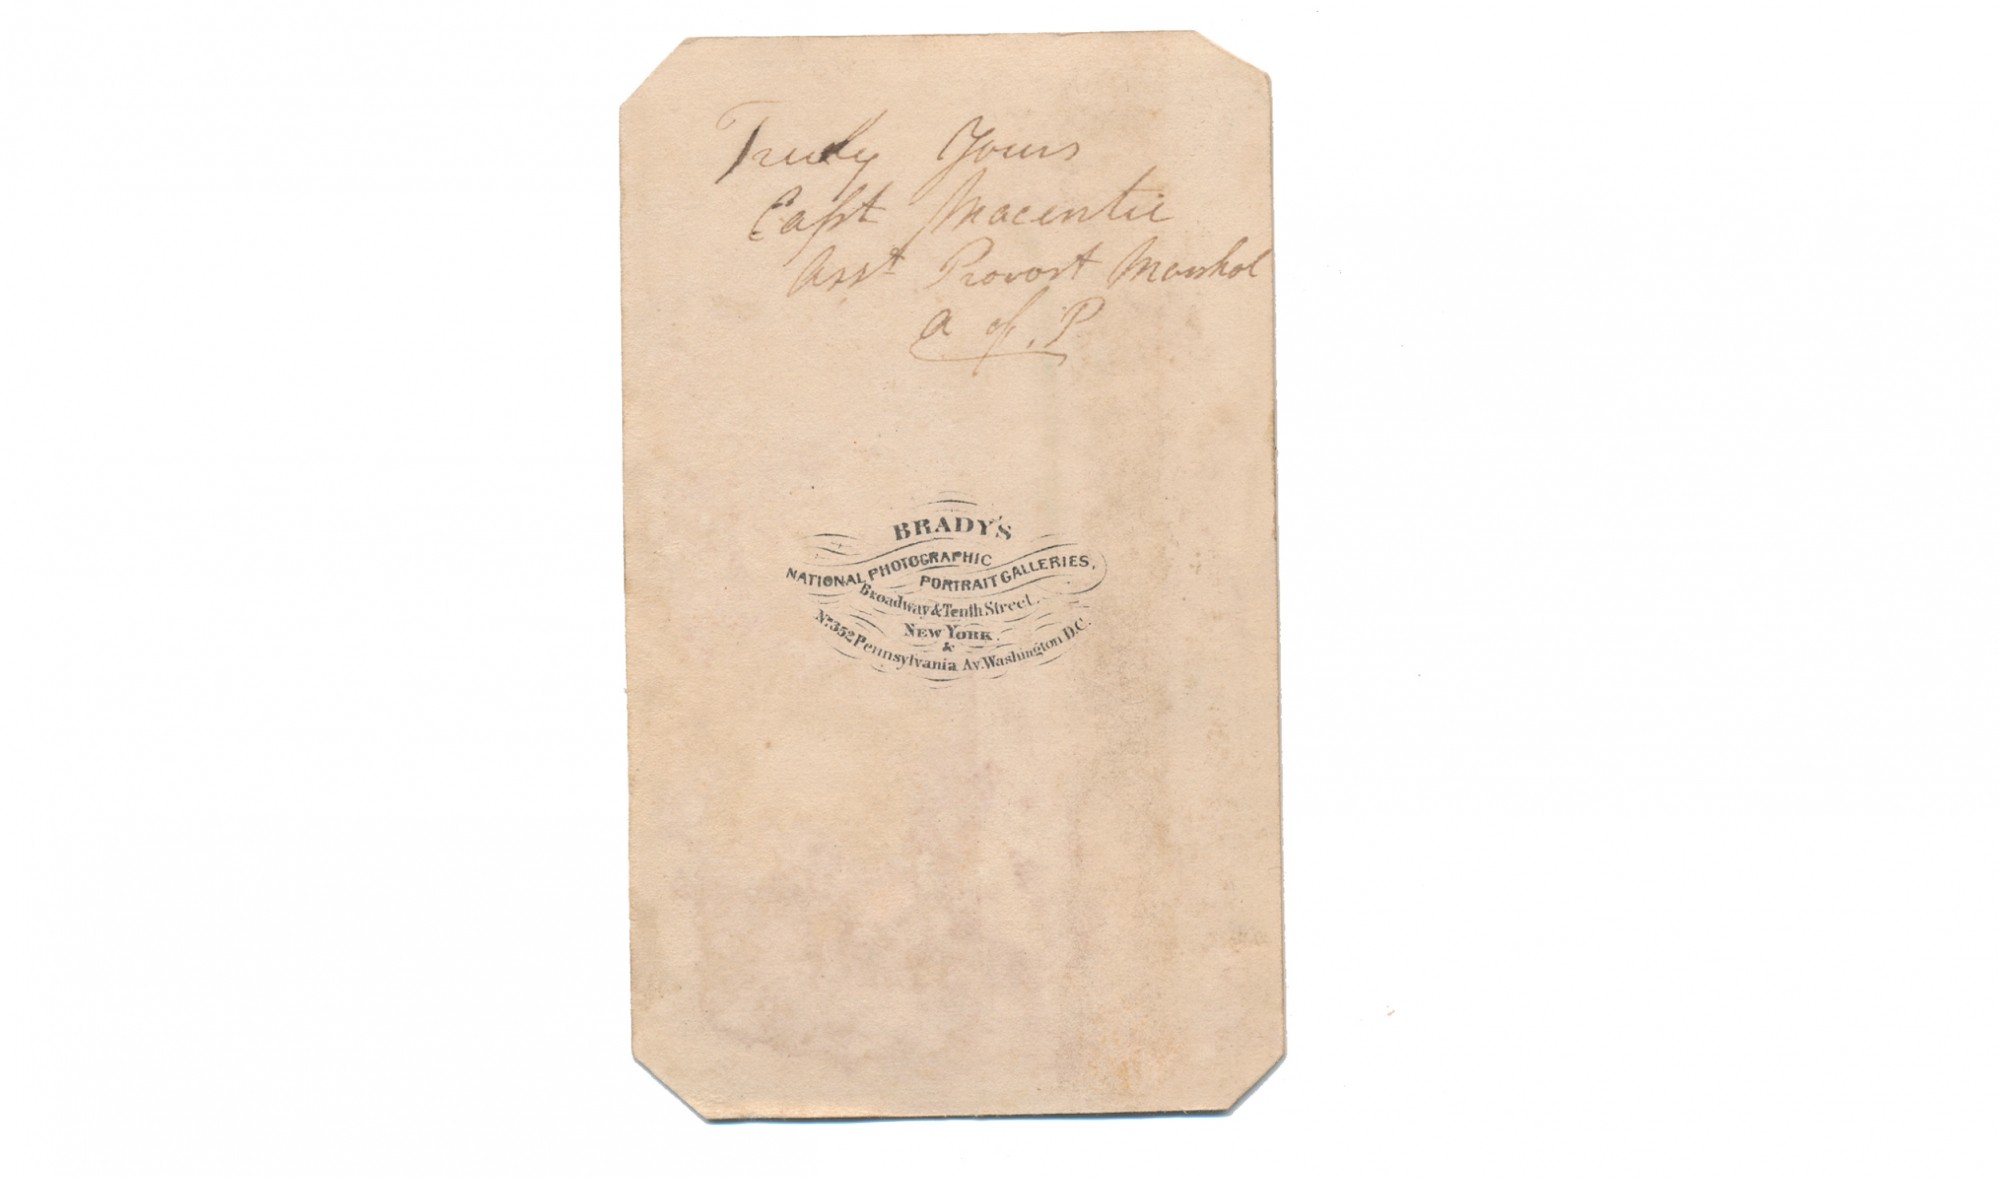 Truly Yours
Capt Macentie
Asst Provost Marshal
A of. P
BRADY'S
NATIONAL PHOTOGRAPHIC
PORTRAIT GALLERIES,
Broadway & Tenth Street.
NEW YORK.
&
No. 352 Pennsylvania Av. Washington D.C.